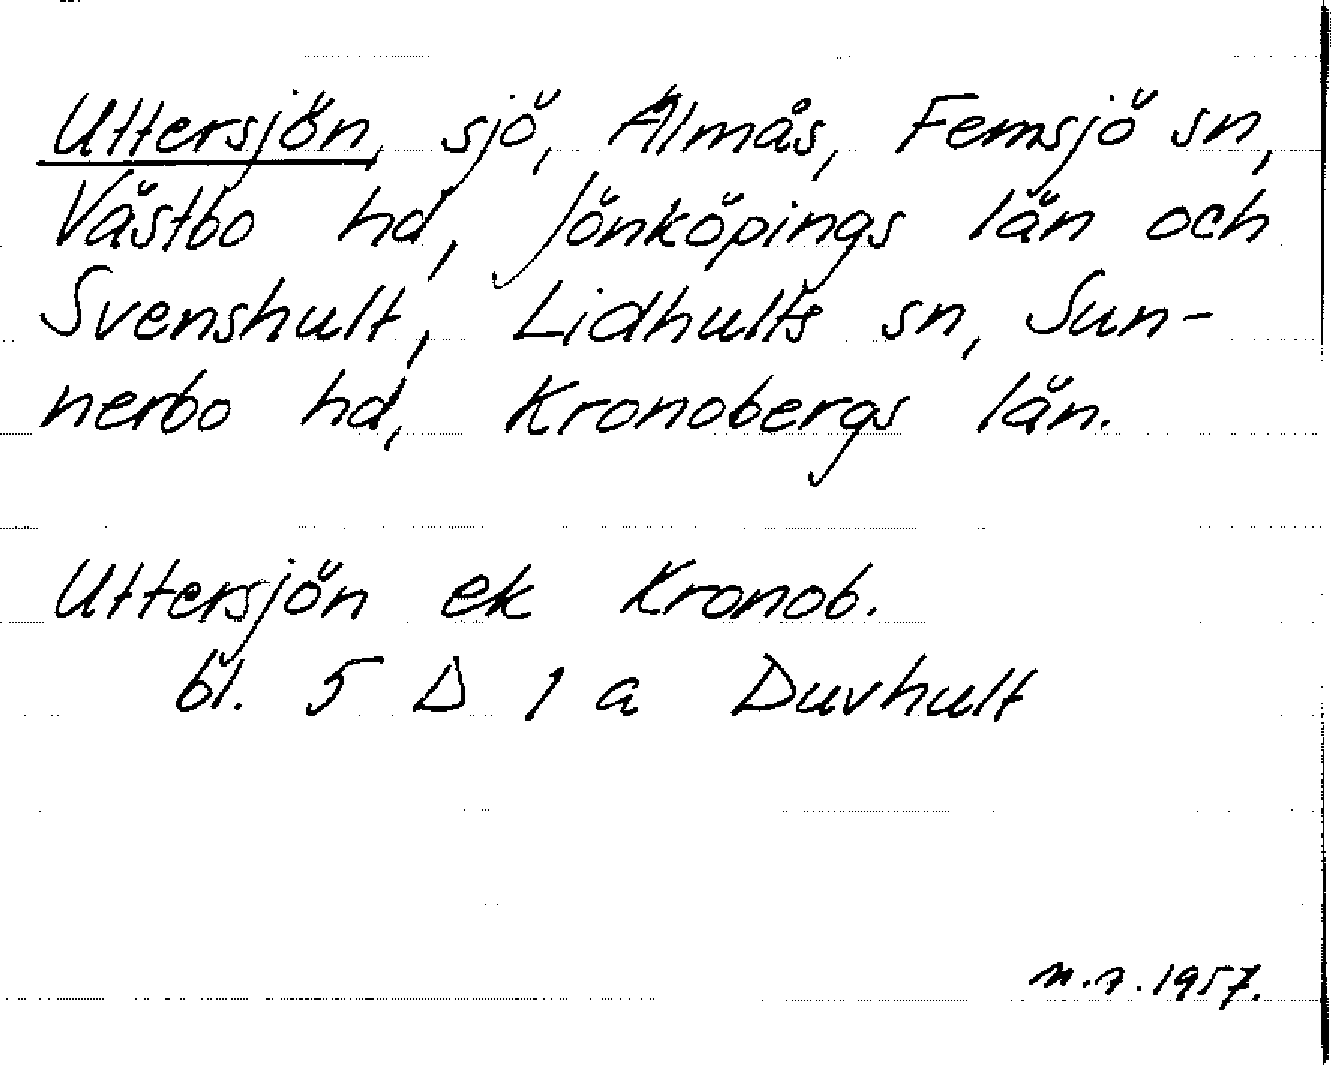 Uttersjön, sjö, Älmås, Femsjö sn,
Västbo hd, Jönköpings län och
Svenshult, Lidhults sn, Sun-
nerbo hd, Kronobergs län.
Uttersjön ek Kronob.
bl. 5 D 1 a Duvhult
1957.